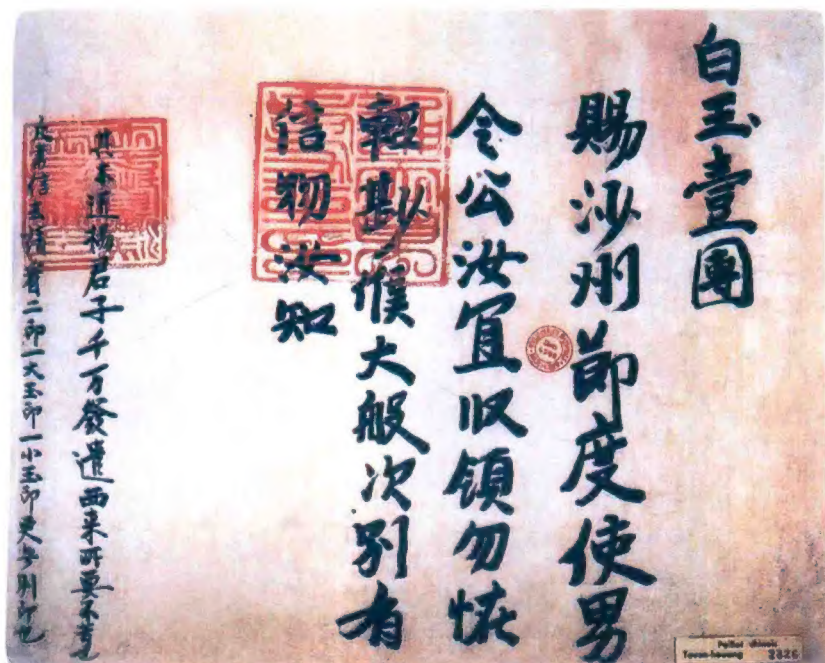 白玉壹團
賜沙州節度使男
令公汝宜收領勿恠
輕尠候大般次別有
信物汝知
其木道楊君子千万發遣西來所要不
書信去請看二印一大玉印一小玉印更无別印也
Pelliot chinois
Touen-houang 2826